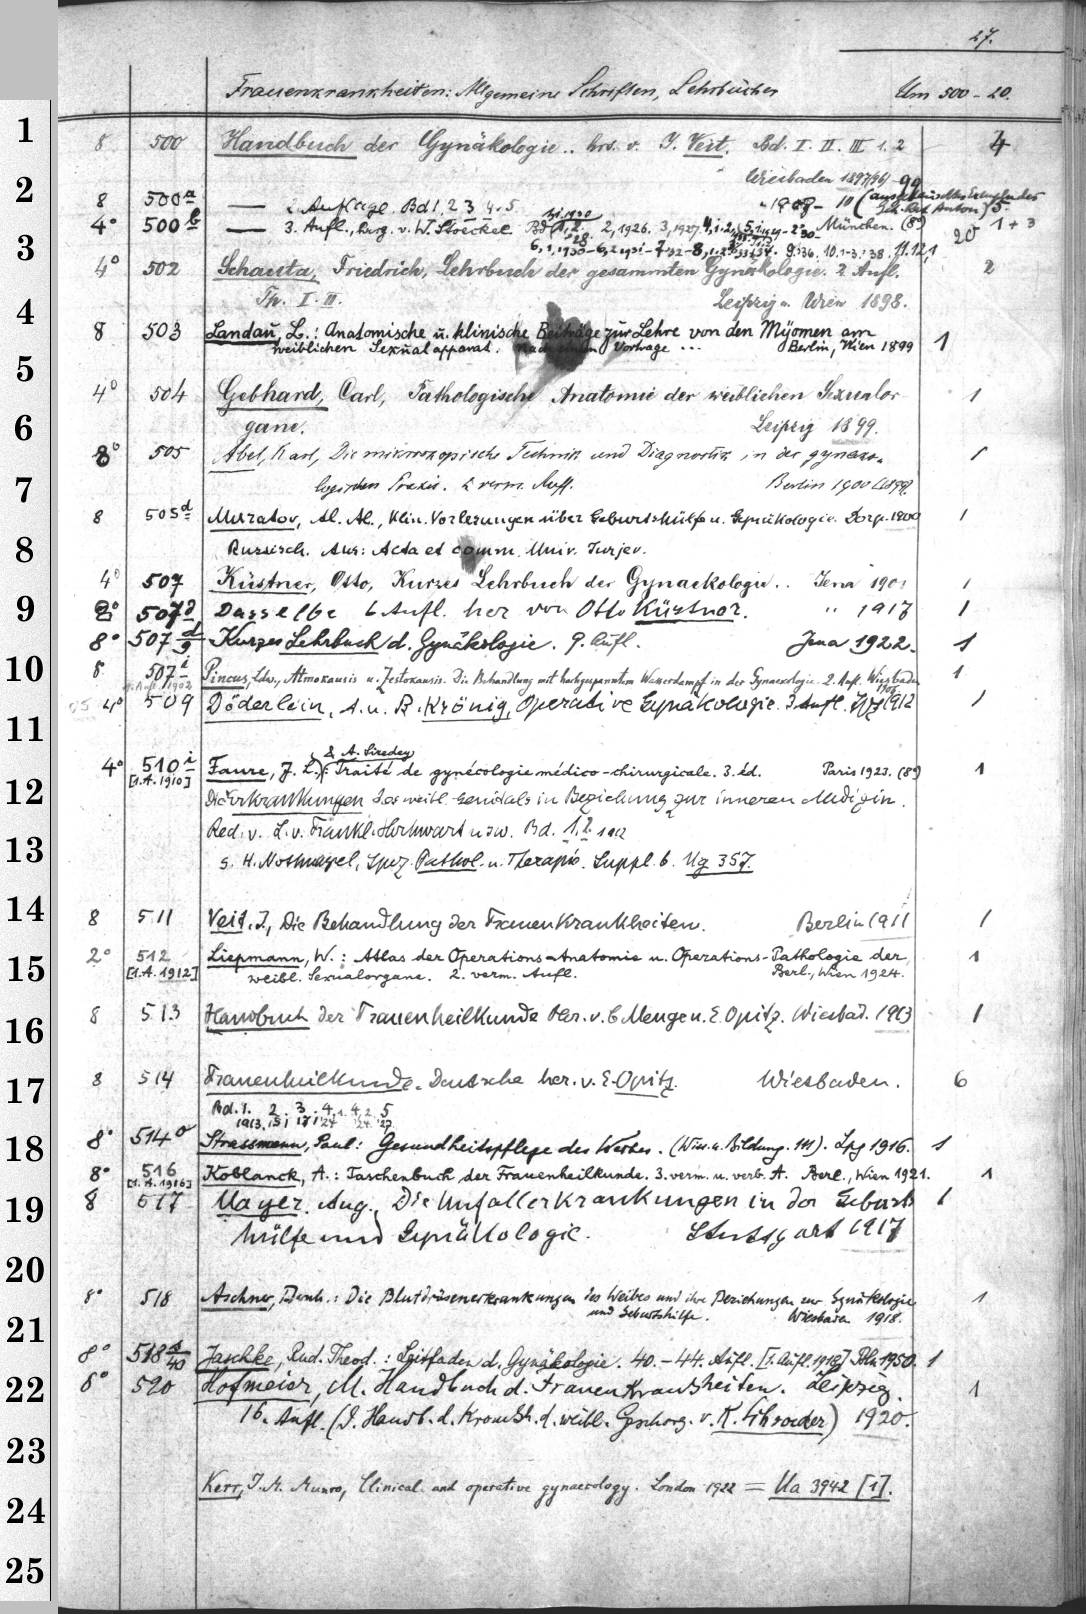 27.
Frauenkrankheiten: Allgemeine Schriften, Lehrbücher Um 500-20.
1
8 500 Handbuch der Gynäkologie.. hrs. v. J. Veit. Bd. I. II. III 1. 2 4
Wiesbaden 1897/99
2
8 500a — 2. Auflage. Bd 1. 2. 3. 4. 5 " 1908-10 5
4° 500b — 3. Aufl., hrsg. v. W. Stoeckel. Bd 2, 1926. 3, 1927. München. (8°) 20 1+3
3
4° 502 Schauta, Friedrich, Lehrbuch der gesammten Gynäkologie. 2. Aufl. 2
Th. I. II. Leipzig u. Wien 1898.
4
8 503 Landau, L.: Anatomische u. klinische Beiträge zur Lehre von den Myomen am 1
weiblichen Sexualapparat. Nach einem Vortrage ... Berlin, Wien 1899
5
4° 504 Gebhard, Carl, Pathologische Anatomie der weiblichen Sexualor 1
6
gane. Leipzig 1899.
8° 505 Abel, Karl, Die mikroskopische Technik und Diagnostik in der gynäko- 1
7
logischen Praxis. 2 verm. Aufl. Berlin 1900 (1899).
8 505d Muratov, Al. Al., Klin. Vorlesungen über Geburtshülfe u. Gynäkologie. Dorp. 1900 1
8
Russisch. Aus: Acta et comm. Univ. Jurjev.
4° 507 Küstner, Otto, Kurzes Lehrbuch der Gynaekologie.. Jena 1901 1
9
8° 507d Dasselbe 6 Aufl. her von Otto Küstner. " 1917 1
8° 507 d/9 Kurzes Lehrbuch d. Gynäkologie. 9. Aufl. Jena 1922. 1
10
8 507i Pincus, Ldw., Atmokausis u. Zestokausis. Die Behandlung mit hochgespanntem Wasserdampf in der Gynaekologie. 2. Aufl. Wiesbaden 1906 1
4° 509 Döderlein, A. u. B. Krönig, Operative Gynäkologie. 3 Aufl. Lpzg 1912 1
11
& A. Siredey
4° 510i Faure, J. L.): Traité de gynécologie médico-chirurgicale. 3. éd. Paris 1923. (8°) 1
[1. A. 1910]
12
Die Erkrankungen des weibl. Genitals in Beziehung zur inneren Medizin.
Red. v. L. v. Frankl-Hochwart usw. Bd. 1. 2. 1912
13
s. H. Nothnagel, Spez. Pathol. u. Therapie. Suppl. 6. Ug 357.
14
8 511 Veit, J., Die Behandlung der Frauenkrankheiten. Berlin 1911 1
15
2° 512 Liepmann, W.: Atlas der Operations-Anatomie u. Operations-Pathologie der 1
[1. A. 1912] weibl. Sexualorgane. 2. verm. Aufl. Berl., Wien 1924.
16
8 513 Handbuch der Frauenheilkunde Her. v. C. Menge u. E. Opitz. Wiesbad. 1913 1
17
8 514 Frauenheilkunde. Deutsche her. v. E. Opitz. Wiesbaden. 6
Bd. 1. 2. 3. 4,1. 4,2. 5
1913. 15. 17. 24 24. 27
18
8° 514o Strassmann, Paul: Gesundheitspflege des Weibes. (Wiss. u. Bildung. 111). Lpg 1916. 1
8° 516 Koblanck, A.: Taschenbuch der Frauenheilkunde. 3. verm. u. verb. A. Berl., Wien 1921. 1
[1. A. 1916]
19
8 517 Mayer, Aug., Die Unfallerkrankungen in der Geburts 1
hülfe und Gynäkologie. Stuttgart 1917
20
21
8° 518 Aschner, Bernh.: Die Blutdrüsenerkrankungen des Weibes und ihre Beziehungen zur Gynäkologie 1
und Geburtshilfe. Wiesbaden 1918.
8° 518 s/40 Jaschke, Rud. Theod.: Leitfaden d. Gynäkologie. 40.-44. Aufl. [1. Aufl. 1918] Bln 1950. 1
22
8° 520 Hofmeier, M. Handbuch d. Frauenkrankheiten. Leipzig. 1
16. Aufl. (D. Handb. d. Krankh. d. weibl. Geschorg. v. K. Schroeder) 1920.
23
Kerr, J. M. Munro, Clinical and operative gynaecology. London 1922 = Ua 3942 [1].
24
25